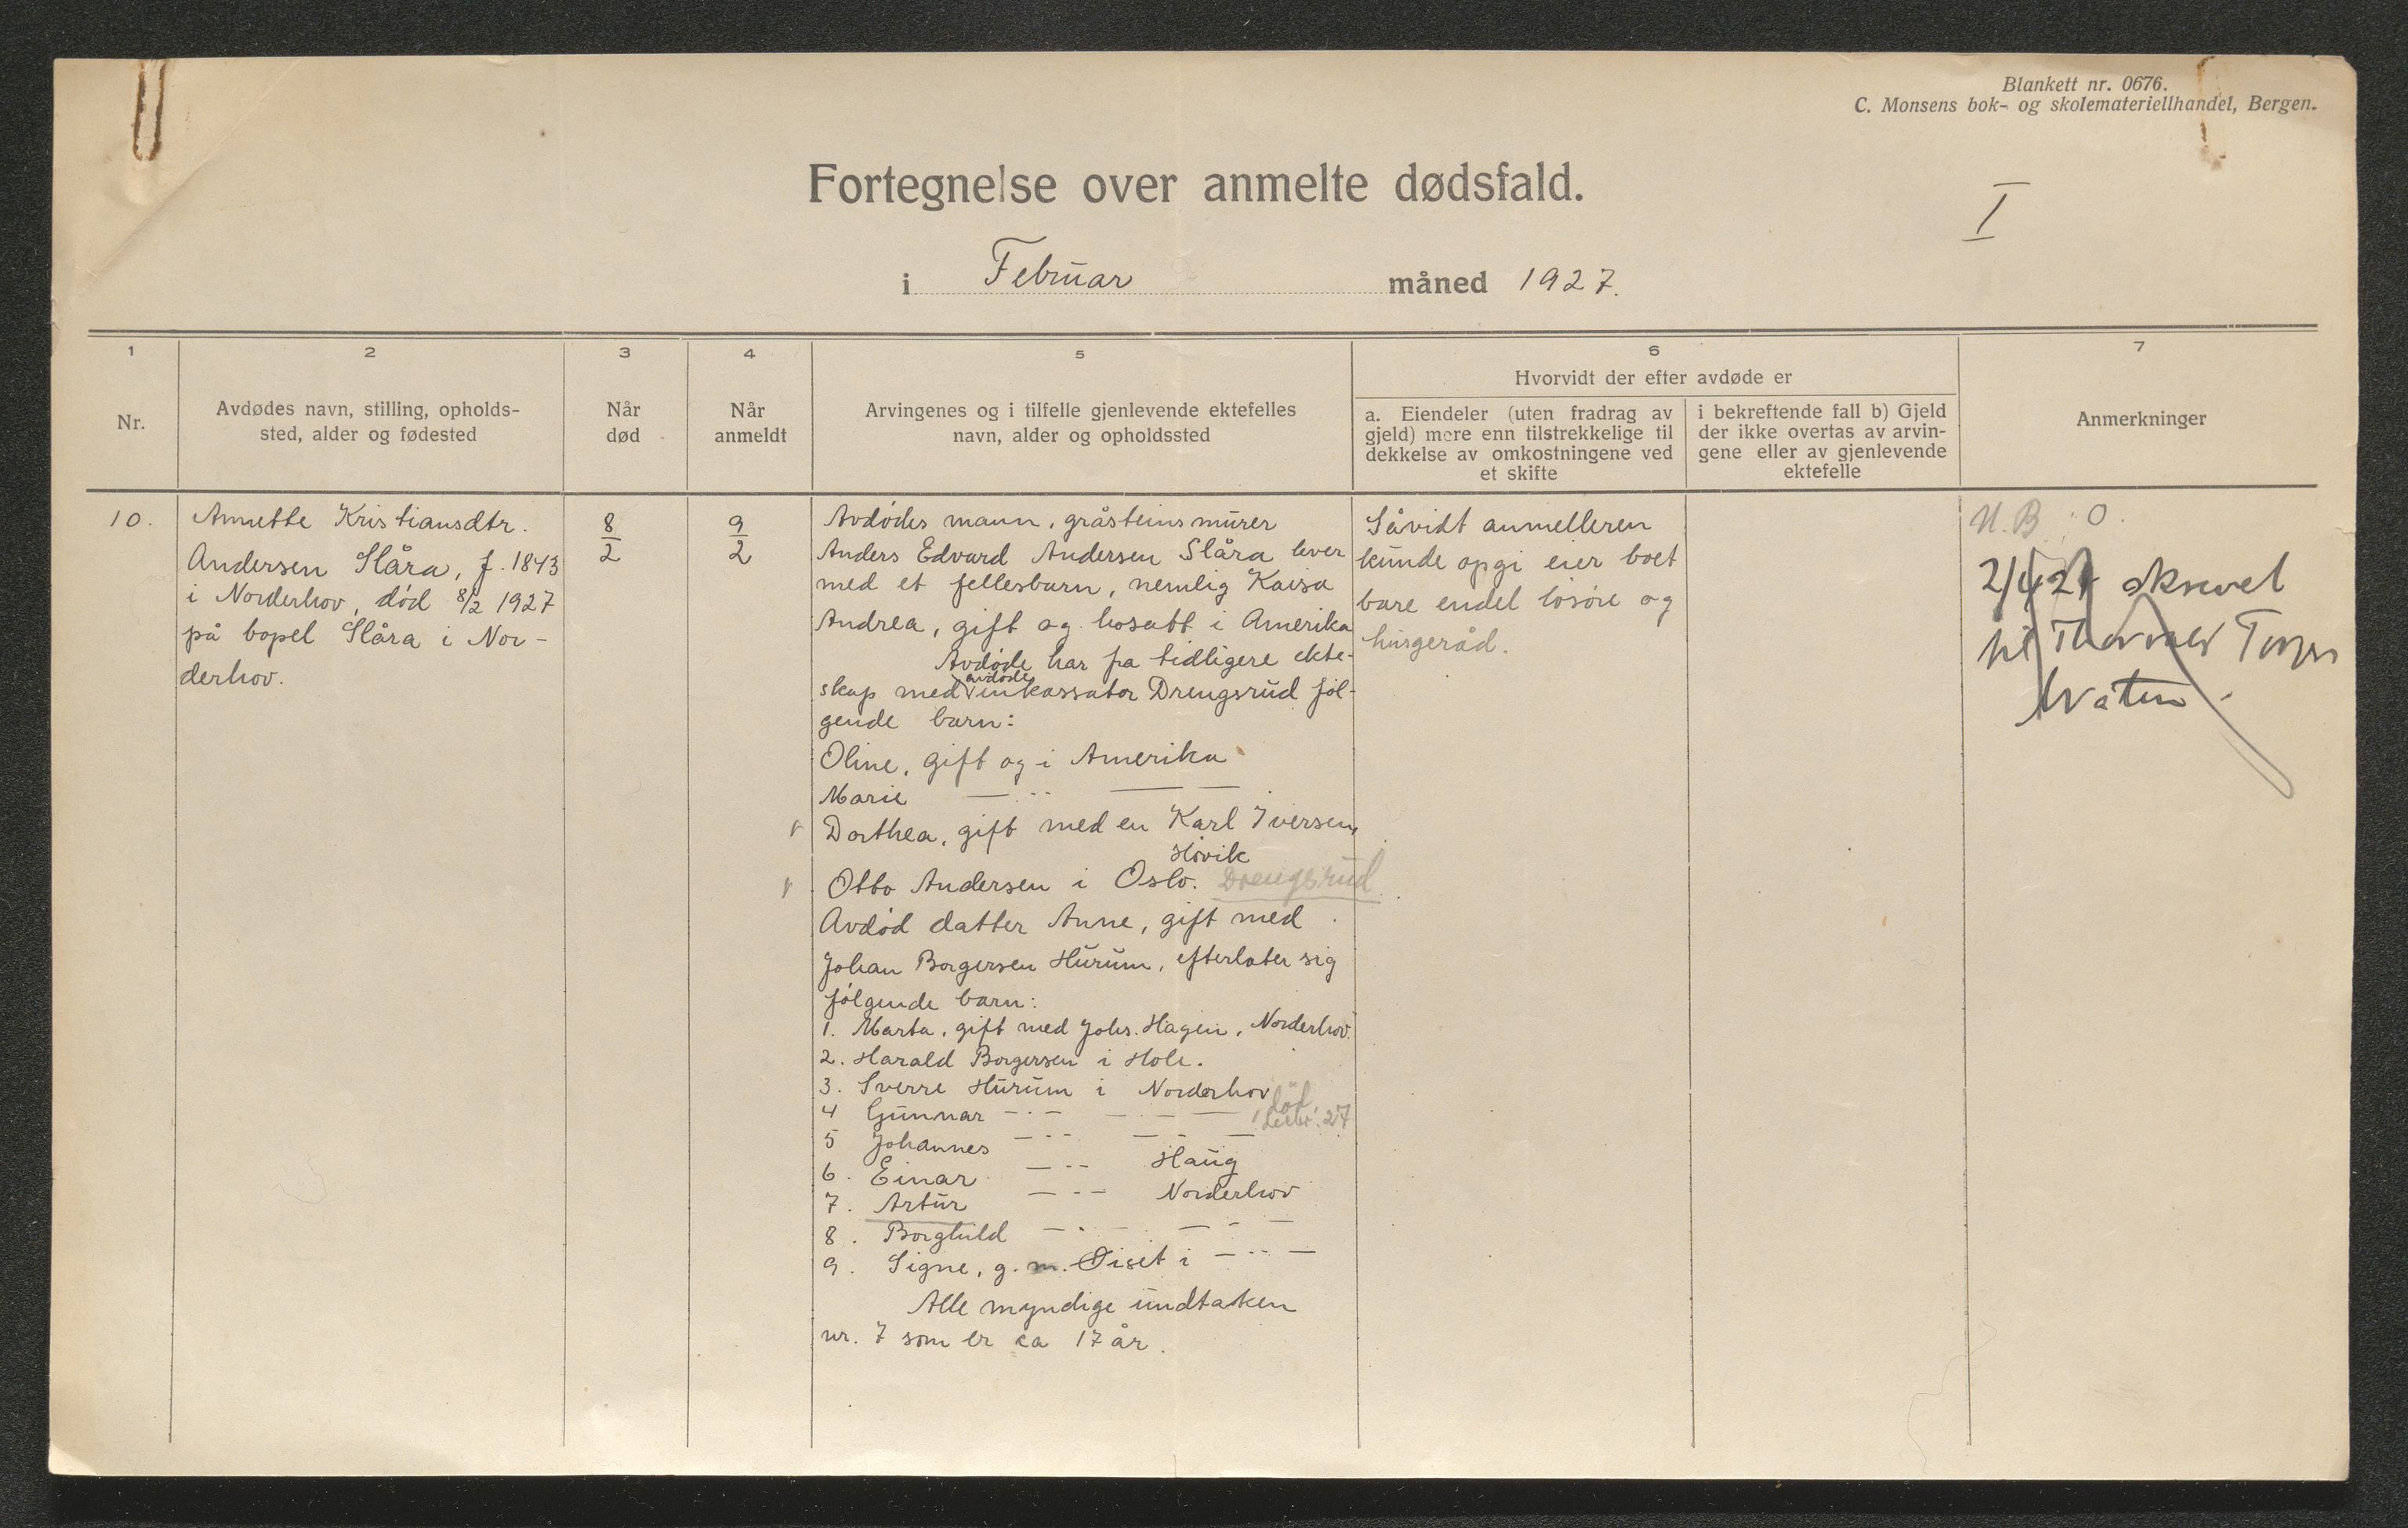 Blankett nr. 0676.
C. Monsens bok- og skolemateriellhandel, Bergen.
Fortegnelse over anmelte dødsfald.
I
i Februar måned 1927.
1
2
3
4
5
6
7
Nr.
Avdødes navn, stilling, opholds-
sted, alder og fødested
Når
død
Når
anmeldt
Arvingenes og i tilfelle gjenlevende ektefelles
navn, alder og opholdssted
Hvorvidt der efter avdøde er
a. Eiendeler (uten fradrag av
gjeld) mere enn tilstrekkelige til
dekkelse av omkostningene ved
et skifte
i bekreftende fall b) Gjeld
der ikke overtas av arvin-
gene eller av gjenlevende
ektefelle
Anmerkninger
10.
Annette Kristiansdtr.
Andersen Slåra, f. 1843
i Norderhov, død 8/2 1927
på bopel Slåra i Nor-
derhov.
8/2
9/2
Avdødes mann, gråsteinsmurer
Anders Edvard Andersen Slåra lever
med et fellesbarn, nemlig Kaisa
Andrea, gift og bosatt i Amerika
Avdøde har fra tidligere ekte-
skap med avdøde inkassator Drengsrud føl-
gende barn:
Oline, gift og i Amerika
Marie — · - — —
Dorthea, gift med en Karl Iversen,
Høvik
Otto Andersen i Oslo. Drengsrud
Avdød datter Anne, gift med
Johan Borgersen Hurum, efterlater sig
følgende barn:
1. Marta, gift med Johs. Hagen, Norderhov.
2. Harald Borgersen i Hole.
3. Sverre Hurum i Norderhov
4 Gunnar — · — — · — — død 27
5 Johannes — - - — - —
6. Einar — - - Haug
7. Artur — - - Norderhov
8. Borghild — - — — - —
9. Signe, g. m. Øiset i — - - —
Alle myndige undtaken
nr. 7 som er ca 17 år.
Såvidt anmelleren
kunde opgi eier boet
bare endel løsøre og
husgeråd.
N.B. O.
skrevet
til Thorvald